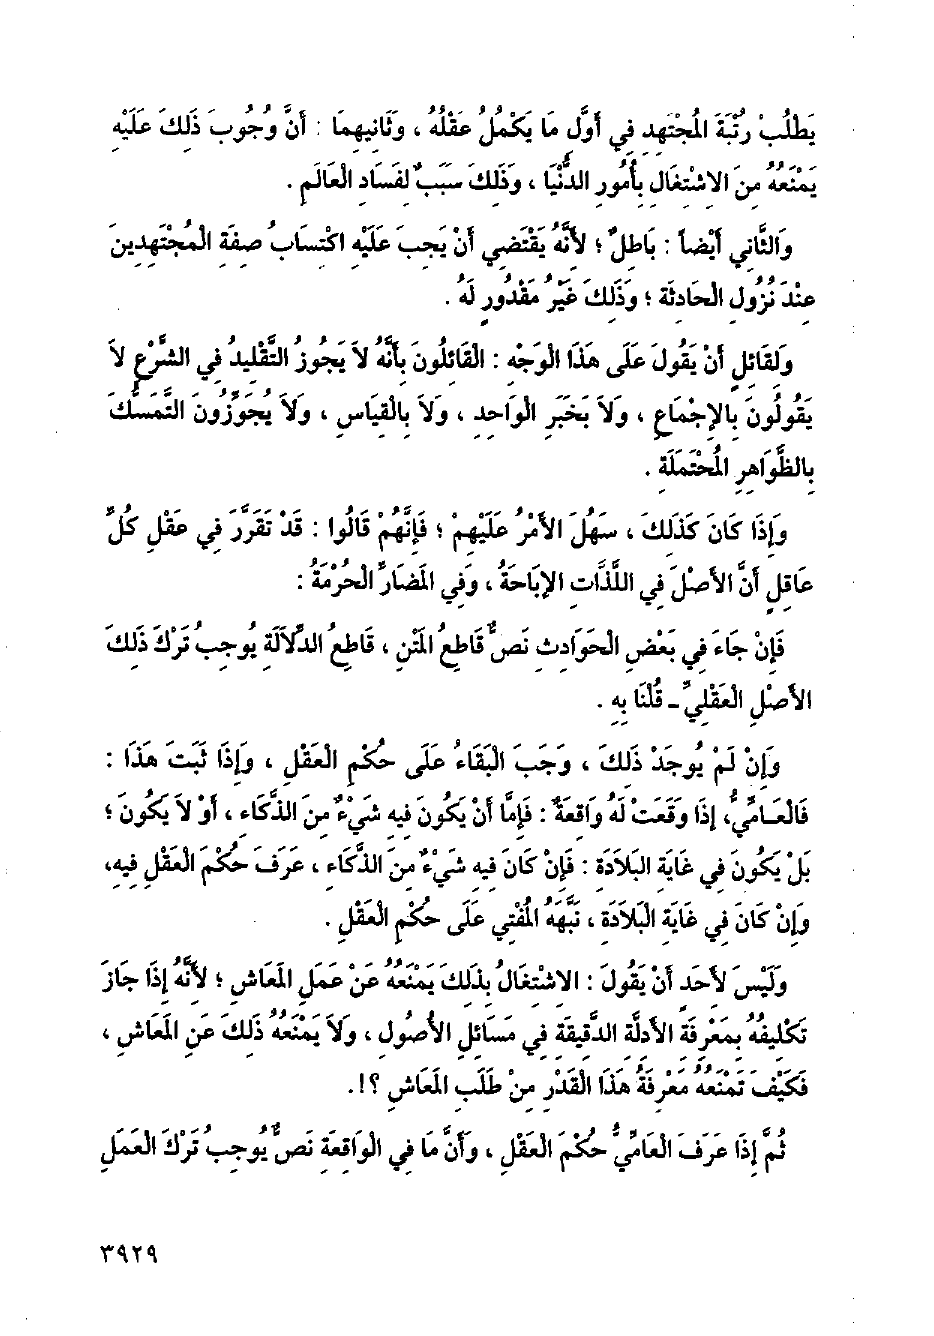 يَطْلُبْ رُتْبَةَ الْمُجْتَهِدِ فِي أَوَّلِ مَا يَكْمُلُ عَقْلُهُ ، وَثَانِيهِمَا : أَنَّ وُجُوبَ ذَلِكَ عَلَيْهِ
يَمْنَعُهُ مِنَ الاِشْتِغَالِ بِأُمُورِ الدُّنْيَا ، وَذَلِكَ سَبَبٌ لِفَسَادِ الْعَالَمِ .
وَالثَّانِي أَيْضاً : بَاطِلٌ ؛ لأَنَّهُ يَقْتَضِي أَنْ يَجِبَ عَلَيْهِ اكْتِسَابُ صِفَةِ الْمُجْتَهِدِينَ
عِنْدَ نُزُولِ الْحَادِثَةِ ؛ وَذَلِكَ غَيْرُ مَقْدُورٍ لَهُ .
وَلِقَائِلٍ أَنْ يَقُولَ عَلَى هَذَا الْوَجْهِ : الْقَائِلُونَ بِأَنَّهُ لاَ يَجُوزُ التَّقْلِيدُ فِي الشَّرْعِ لاَ
يَقُولُونَ بِالإِجْمَاعِ ، وَلاَ بِخَبَرِ الْوَاحِدِ ، وَلاَ بِالْقِيَاسِ ، وَلاَ يُجَوِّزُونَ التَّمَسُّكَ
بِالظَّوَاهِرِ الْمُحْتَمَلَةِ .
وَإِذَا كَانَ كَذَلِكَ ، سَهُلَ الأَمْرُ عَلَيْهِمْ ؛ فَإِنَّهُمْ قَالُوا : قَدْ تَقَرَّرَ فِي عَقْلِ كُلِّ
عَاقِلٍ أَنَّ الأَصْلَ فِي اللَّذَّاتِ الإِبَاحَةُ ، وَفِي الْمَضَارِّ الْحُرْمَةُ :
فَإِنْ جَاءَ فِي بَعْضِ الْحَوَادِثِ نَصٌّ قَاطِعُ الْمَتْنِ ، قَاطِعُ الدَّلاَلَةِ يُوجِبُ تَرْكَ ذَلِكَ
الأَصْلِ الْعَقْلِيِّ - قُلْنَا بِهِ .
وَإِنْ لَمْ يُوجَدْ ذَلِكَ ، وَجَبَ الْبَقَاءُ عَلَى حُكْمِ الْعَقْلِ ، وَإِذَا ثَبَتَ هَذَا :
فَالْعَامِّيُّ، إِذَا وَقَعَتْ لَهُ وَاقِعَةٌ : فَإِمَّا أَنْ يَكُونَ فِيهِ شَيْءٌ مِنَ الذَّكَاءِ ، أَوْ لاَ يَكُونَ ؛
بَلْ يَكُونَ فِي غَايَةِ الْبَلاَدَةِ : فَإِنْ كَانَ فِيهِ شَيْءٌ مِنَ الذَّكَاءِ ، عَرَفَ حُكْمَ الْعَقْلِ فِيهِ،
وَإِنْ كَانَ فِي غَايَةِ الْبَلاَدَةِ ، نَبَّهَهُ الْمُفْتِي عَلَى حُكْمِ الْعَقْلِ .
وَلَيْسَ لأَحَدٍ أَنْ يَقُولَ : الاِشْتِغَالُ بِذَلِكَ يَمْنَعُهُ عَنْ عَمَلِ الْمَعَاشِ ؛ لأَنَّهُ إِذَا جَازَ
تَكْلِيفُهُ بِمَعْرِفَةِ الأَدِلَّةِ الدَّقِيقَةِ فِي مَسَائِلِ الأُصُولِ ، وَلاَ يَمْنَعُهُ ذَلِكَ عَنِ الْمَعَاشِ ،
فَكَيْفَ تَمْنَعُهُ مَعْرِفَةُ هَذَا الْقَدْرِ مِنْ طَلَبِ الْمَعَاشِ ؟!.
ثُمَّ إِذَا عَرَفَ الْعَامِّيُّ حُكْمَ الْعَقْلِ ، وَأَنَّ مَا فِي الْوَاقِعَةِ نَصٌّ يُوجِبُ تَرْكَ الْعَمَلِ
٣٩٢٩